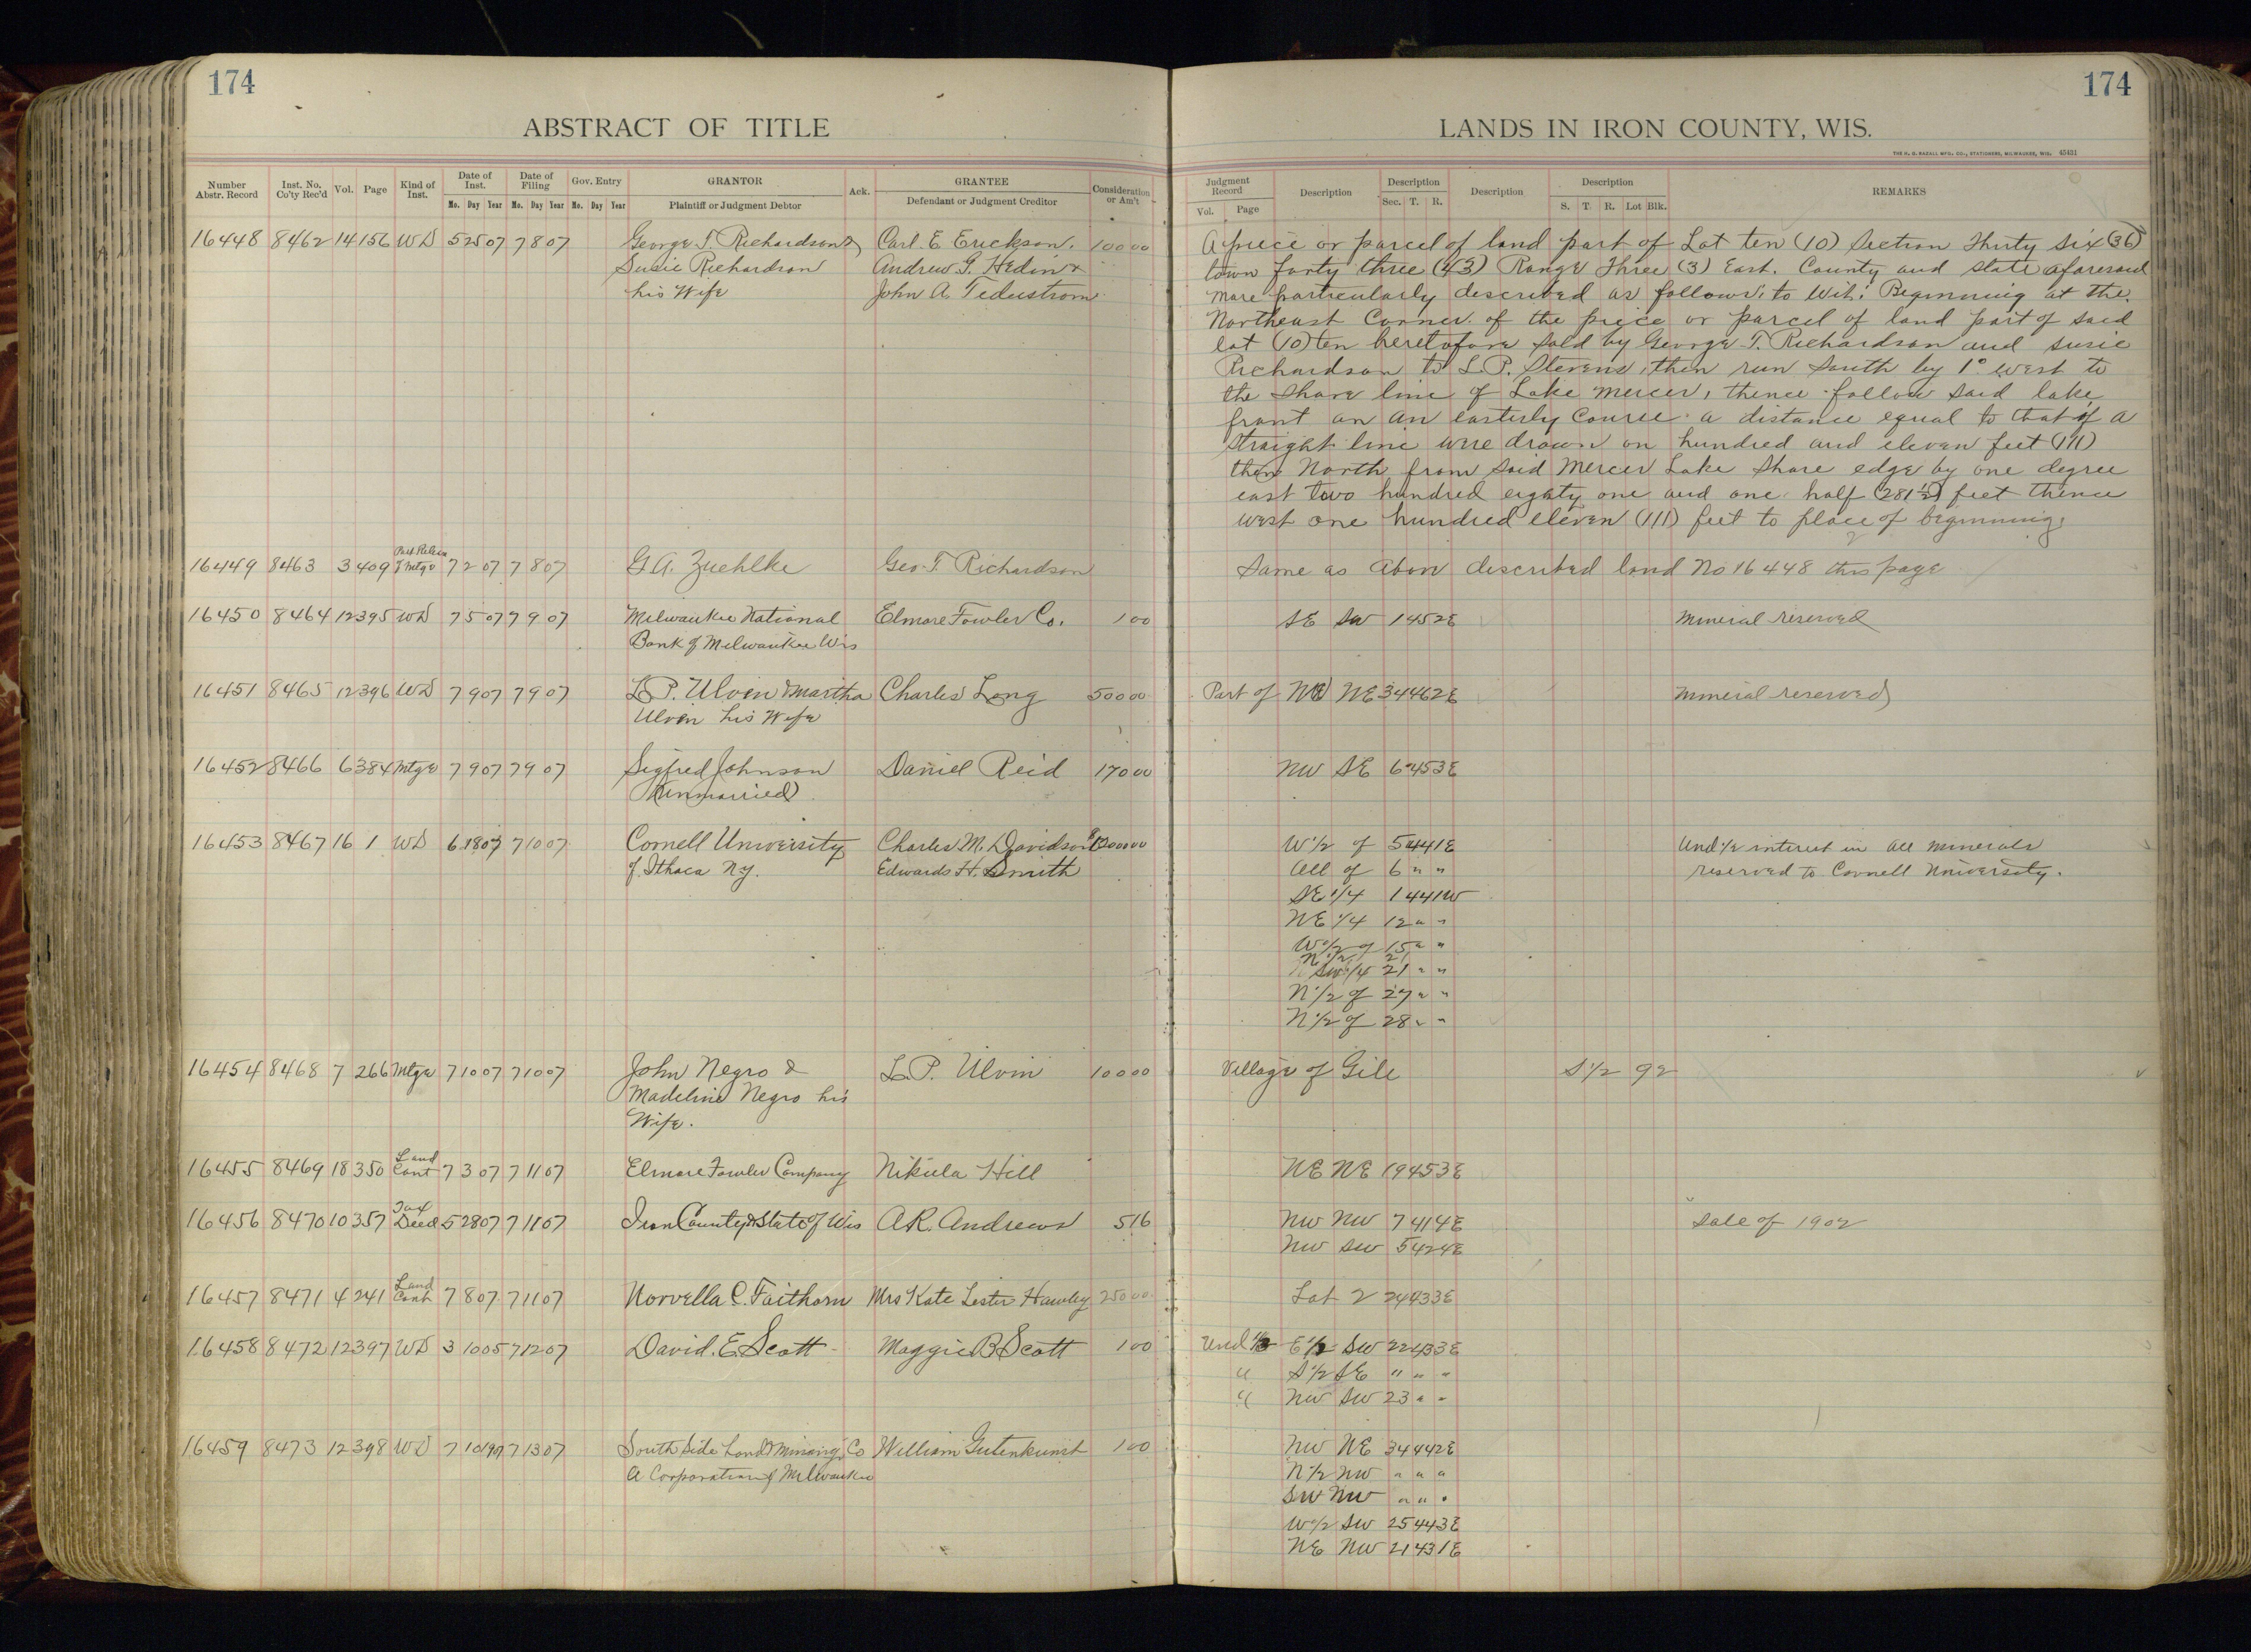 174
ABSTRACT OF TITLE
Number Abstr. Record | Inst. No. Co'ty Rec'd | Vol. | Page | Kind of Inst. | Date of Inst. Mo. Day Year | Date of Filing Mo. Day Year | Gov. Entry Mo. Day Year | GRANTOR Plaintiff or Judgment Debtor | Ack. | GRANTEE Defendant or Judgment Creditor | Consideration or Am't
16448 8462 14 156 WD 5 25 07 7 8 07 George T. Richardson & Carl. E. Erickson, 100 00
Susie Richardson Andrew G. Hedin &
his Wife John A. Tederstrom
16449 8463 3 409 Part Release of Mtge 7 2 07 7 8 07 G.A. Zuehlke Geo. T Richardson
16450 8464 12 395 WD 7 5 07 7 9 07 Milwaukee National Elmore Fowler Co. 1 00
Bank of Milwaukee Wis
16451 8465 12 396 WD 7 9 07 7 9 07 L.P. Ulven & Martha Charles Long 500 00
Ulven his Wife
16452 8466 6 384 Mtge 7 9 07 7 9 07 Sigfred Johnson Daniel Reid 170 00
(Unmarried)
16453 8467 16 1 WD 6 18 07 7 10 07 Cornell University Charles M. Davidson &
of Ithaca N.Y. Edwards H. Smith
16454 8468 7 266 Mtge 7 10 07 7 10 07 John Negro & L.P. Ulvin 100 00
Madeline Negro his
Wife.
16455 8469 18 350 Land Cont 7 3 07 7 11 07 Elmore Fowler Company Nikula Hill
16456 8470 10 357 Tax Deed 5 28 07 7 11 07 Iron County & State of Wis A.R. Andrews 5 16
16457 8471 4 241 Land Cont 7 8 07 7 11 07 Norvella C. Faithorn Mrs Kate Lester Hawley 250 00
16458 8472 12 397 WD 3 10 05 7 12 07 David. E. Scott Maggie B Scott 1 00
16459 8473 12 398 WD 7 10 1907 7 13 07 South Side Land & Mining Co William Gutenkunst 1 00
A Corporation of Milwaukee
174
LANDS IN IRON COUNTY, WIS.
THE H. G. RAZALL MFG. CO., STATIONERS, MILWAUKEE, WIS. 45431
Judgment Record Vol. Page | Description | Description Sec. T. R. | Description | Description S. T. R. Lot Blk. | REMARKS
A piece or parcel of land part of Lot ten (10) Section Thirty Six (36)
town forty three (43) Range Three (3) East. County and State aforesaid
more particularly described as follows, to Wit: Beginning at the
Northeast Corner of the piece or parcel of land part of said
lot (10) ten heretofore sold by George T. Richardson and Susie
Richardson to L.P. Stevens, then run South by 1° west to
the Shore line of Lake Mercer, thence follow said lake
front on an easterly course a distance equal to that if a
Straight line were drawn on hundred and eleven feet (111)
then North from said Mercer Lake Shore edge by one degree
east Two hundred eighty one and one half (281 1/2) feet thence
west one hundred eleven (111) feet to place of beginning.
Same as Above described land No 16448 this page
SE SW 14 45 2E Mineral reserved
Part of NE NE 34 46 2E Mineral reserved
NW SE 6 45 3E
W 1/2 of 5 44 1E Und 1/2 interest in all minerals
All of 6 " " reserved to Cornell University.
SE 1/4 1 44 1W
NE 1/4 12 " "
W 1/2 of 15 " "
N 1/2 21
SW 1/4 21 " "
N 1/2 of 27 " "
N 1/2 of 28 " "
Village of Gile S 1/2 92
NE NE 19 45 3E
NW NW 7 41 4E Sale of 1902
NW SW 5 42 4E
Lot 2 24 43 3E
Und E 1/2 SW 22 43 3E
" S 1/2 SE " " "
" NW SW 23 " "
NW NE 34 44 2E
N 1/2 NW " " "
SW NW " " "
W 1/2 SW 25 44 3E
NE NW 21 43 1E